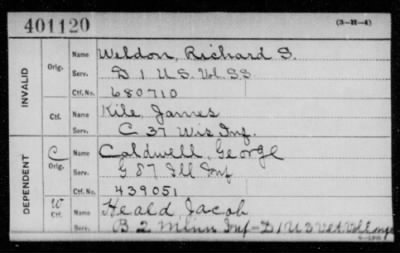 401120
(3-H-4)
INVALID
Orig. Name Weldon, Richard S.
Serv. D 1 U.S. Vol. S.S
Ctf. No. 680710
Ctf. Name Kile, James
Serv. C 37 Wis Inf.
DEPENDENT
C Orig. Name Caldwell, George
Serv. G 87 Ill Inf
Ctf. No. 439051
W Ctf. Name Heald, Jacob
Serv. B 2 Minn Inf - D 1 U S Vet Vol Eng